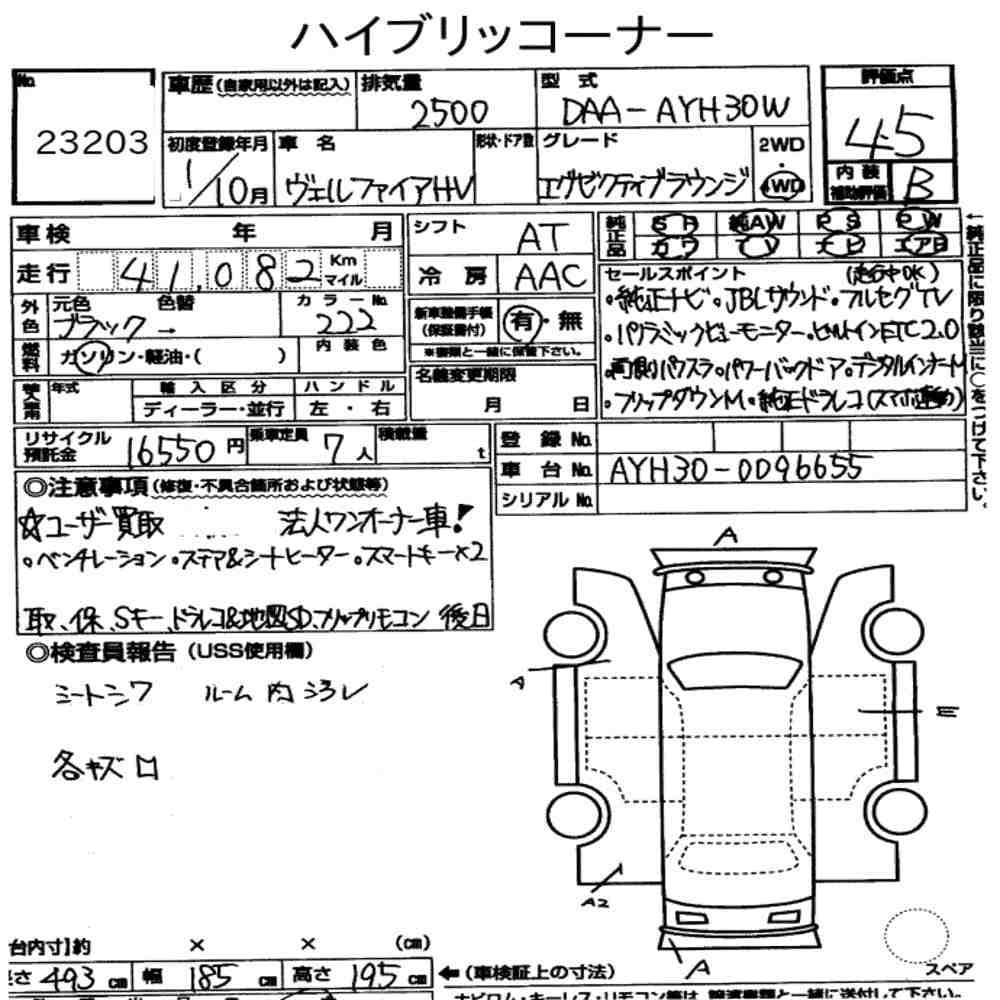 ハイブリッコーナー
No.
23203
車歴(自家用以外は記入)
排気量
2500
型式
DAA-AYH30W
評価点
4.5
初度登録年月
1/10月
車名
ヴェルファイアHV
形状・ドア数
グレード
エグゼクティブラウンジ
2WD
・
4WD
内装
補助評価
B
車検 年 月
走行 41,082 Km
マイル
シフト
AT
冷房
AAC
純正品
SR 純AW PS PW
カワ TV ナビ エアB
外色
元色 色替
ブラック→
カラーNo.
222
燃料
ガソリン・軽油・( )
内装色
新車整備手帳
(保証書付)
有・無
※書類と一緒に保管下さい。
セールスポイント (走行中OK)
・純正ナビ・JBLサウンド・フルセグTV
・パノラミックビューモニター・ビルトインETC2.0
・両側パワスラ・パワーバックドア・デジタルインナーM
・フリップダウンM・純正ドラレコ(スマホ連動)
←純正品に限り該当に○をつけて下さい。
輸入車用
年式
輸入区分
ディーラー・並行
ハンドル
左・右
名義変更期限
月 日
リサイクル
預託金
16550円
乗車定員
7人
積載量
t
登録No.
車台No.
AYH30-0096655
シリアルNo.
◎注意事項(修復・不具合箇所および状態等)
☆ユーザー買取 法人ワンオーナー車!
・ベンチレーション・ステア&シートヒーター・スマートキー×2
取、保、Sキー、ドラレコ&地図SD、フリップリモコン 後日
◎検査員報告(USS使用欄)
シートシワ ルーム内ヨゴレ
各キズ
A
A
A2
A
スペア
台内寸】約 × × (cm)
長さ 493 cm 幅 185 cm 高さ 195 cm
←(車検証上の寸法)
ナビロム・キーレス・リモコン等は、譲渡書類と一緒に送付して下さい。